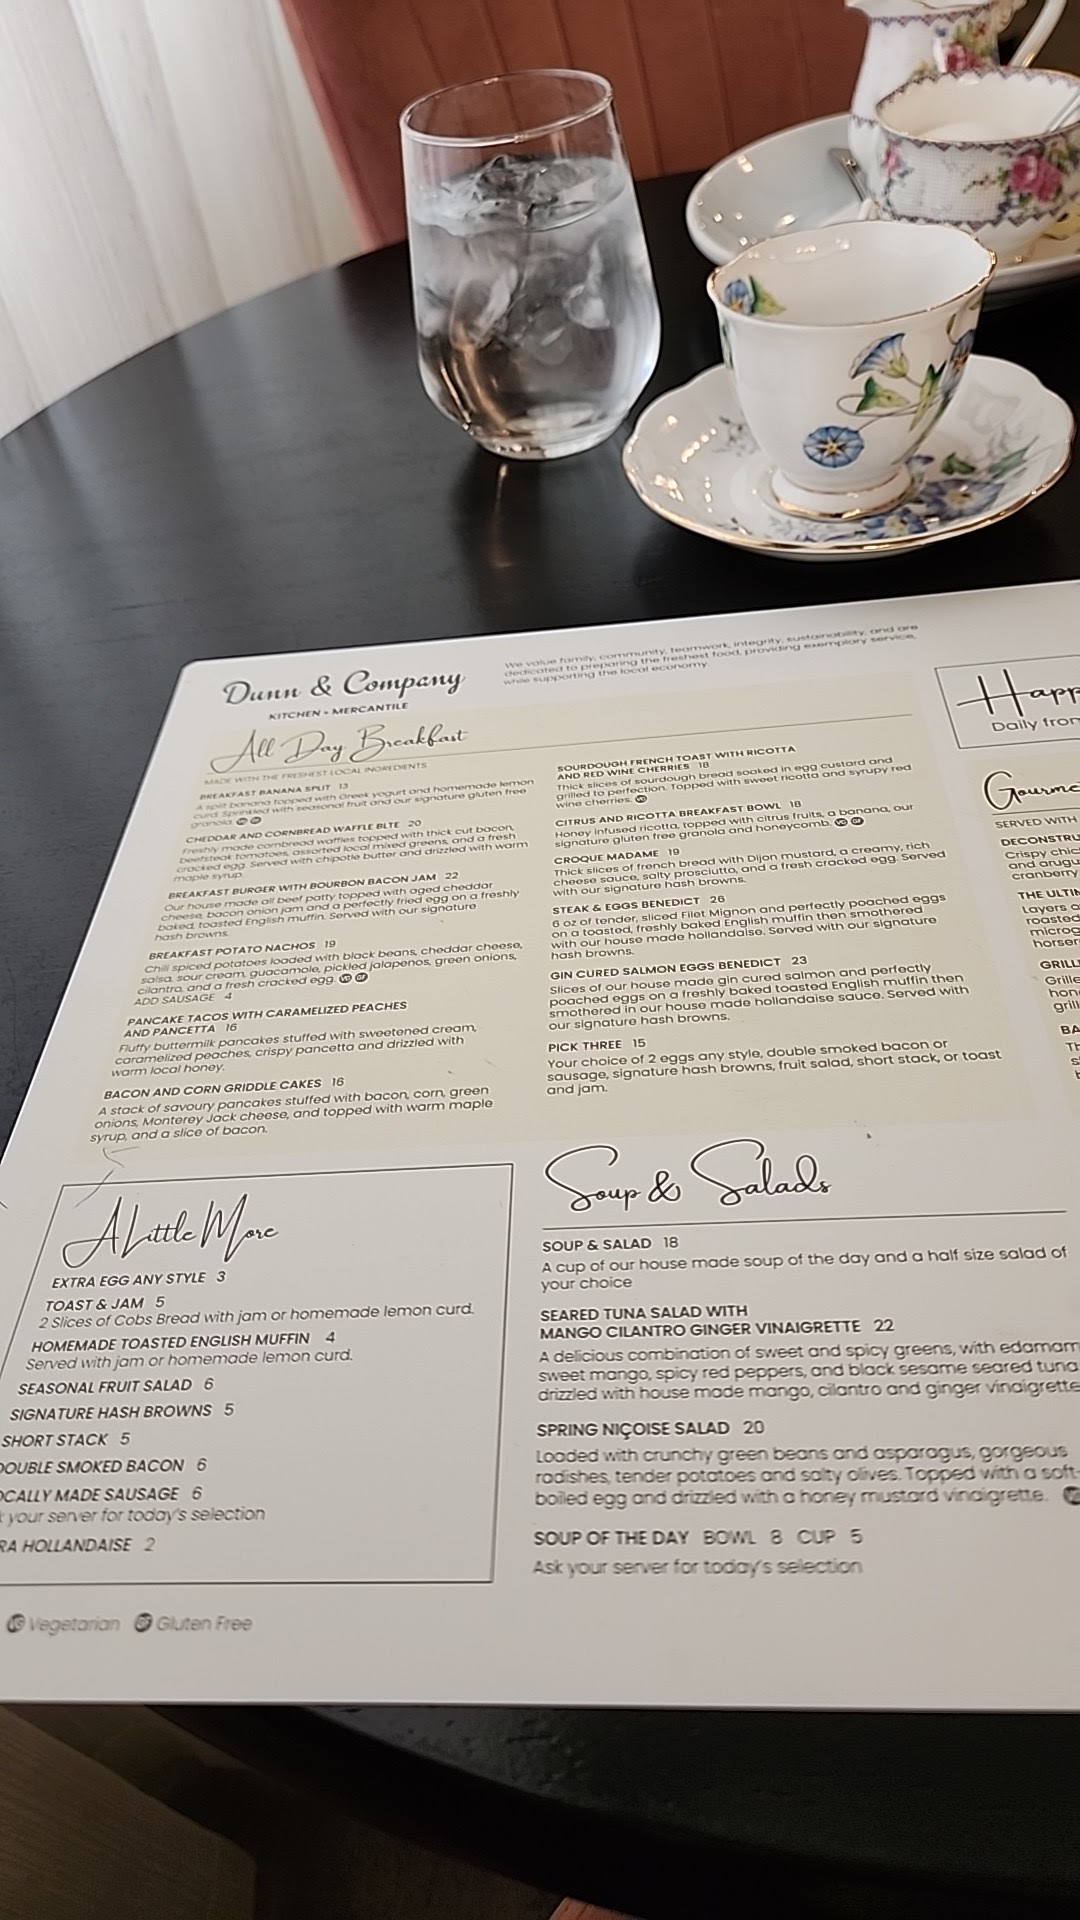 Dunn & Company
KITCHEN + MERCANTILE
We value family, community, teamwork, integrity, sustainability, and are
dedicated to preparing the freshest food, providing exemplary service,
while supporting the local economy.
All Day Breakfast
MADE WITH THE FRESHEST LOCAL INGREDIENTS
BREAKFAST BANANA SPLIT 13
A split banana topped with Greek yogurt and homemade lemon
curd. Sprinkled with seasonal fruit and our signature gluten free
granola. VG GF
CHEDDAR AND CORNBREAD WAFFLE BLTE 20
Freshly made cornbread waffles topped with thick cut bacon,
beefsteak tomatoes, assorted local mixed greens, and a fresh
cracked egg. Served with chipotle butter and drizzled with warm
maple syrup.
BREAKFAST BURGER WITH BOURBON BACON JAM 22
Our house made all beef patty topped with aged cheddar
cheese, bacon onion jam and a perfectly fried egg on a freshly
baked, toasted English muffin. Served with our signature
hash browns.
BREAKFAST POTATO NACHOS 19
Chili spiced potatoes loaded with black beans, cheddar cheese,
salsa, sour cream, guacamole, pickled jalapenos, green onions,
cilantro, and a fresh cracked egg. VG GF
ADD SAUSAGE 4
PANCAKE TACOS WITH CARAMELIZED PEACHES
AND PANCETTA 16
Fluffy buttermilk pancakes stuffed with sweetened cream,
caramelized peaches, crispy pancetta and drizzled with
warm local honey.
BACON AND CORN GRIDDLE CAKES 16
A stack of savoury pancakes stuffed with bacon, corn, green
onions, Monterey Jack cheese, and topped with warm maple
syrup, and a slice of bacon.
SOURDOUGH FRENCH TOAST WITH RICOTTA
AND RED WINE CHERRIES 18
Thick slices of sourdough bread soaked in egg custard and
grilled to perfection. Topped with sweet ricotta and syrupy red
wine cherries. VG
CITRUS AND RICOTTA BREAKFAST BOWL 18
Honey infused ricotta, topped with citrus fruits, a banana, our
signature gluten free granola and honeycomb. VG GF
CROQUE MADAME 19
Thick slices of french bread with Dijon mustard, a creamy, rich
cheese sauce, salty prosciutto, and a fresh cracked egg. Served
with our signature hash browns.
STEAK & EGGS BENEDICT 26
6 oz of tender, sliced Filet Mignon and perfectly poached eggs
on a toasted, freshly baked English muffin then smothered
with our house made hollandaise. Served with our signature
hash browns.
GIN CURED SALMON EGGS BENEDICT 23
Slices of our house made gin cured salmon and perfectly
poached eggs on a freshly baked toasted English muffin then
smothered in our house made hollandaise sauce. Served with
our signature hash browns.
PICK THREE 15
Your choice of 2 eggs any style, double smoked bacon or
sausage, signature hash browns, fruit salad, short stack, or toast
and jam.
A Little More
EXTRA EGG ANY STYLE 3
TOAST & JAM 5
2 Slices of Cobs Bread with jam or homemade lemon curd.
HOMEMADE TOASTED ENGLISH MUFFIN 4
Served with jam or homemade lemon curd.
SEASONAL FRUIT SALAD 6
SIGNATURE HASH BROWNS 5
SHORT STACK 5
DOUBLE SMOKED BACON 6
OCALLY MADE SAUSAGE 6
k your server for today's selection
RA HOLLANDAISE 2
VG Vegetarian GF Gluten Free
Soup & Salads
SOUP & SALAD 18
A cup of our house made soup of the day and a half size salad of
your choice
SEARED TUNA SALAD WITH
MANGO CILANTRO GINGER VINAIGRETTE 22
A delicious combination of sweet and spicy greens, with edamam
sweet mango, spicy red peppers, and black sesame seared tuna
drizzled with house made mango, cilantro and ginger vinaigrette
SPRING NIÇOISE SALAD 20
Loaded with crunchy green beans and asparagus, gorgeous
radishes, tender potatoes and salty olives. Topped with a soft-
boiled egg and drizzled with a honey mustard vinaigrette.
SOUP OF THE DAY BOWL 8 CUP 5
Ask your server for today's selection
Happ
Daily from
Gourme
SERVED WITH
DECONSTRU
Crispy chic
and arugu
cranberry
THE ULTIM
Layers o
roasted
microg
horser
GRILL
Grille
hon
grill
BA
Th